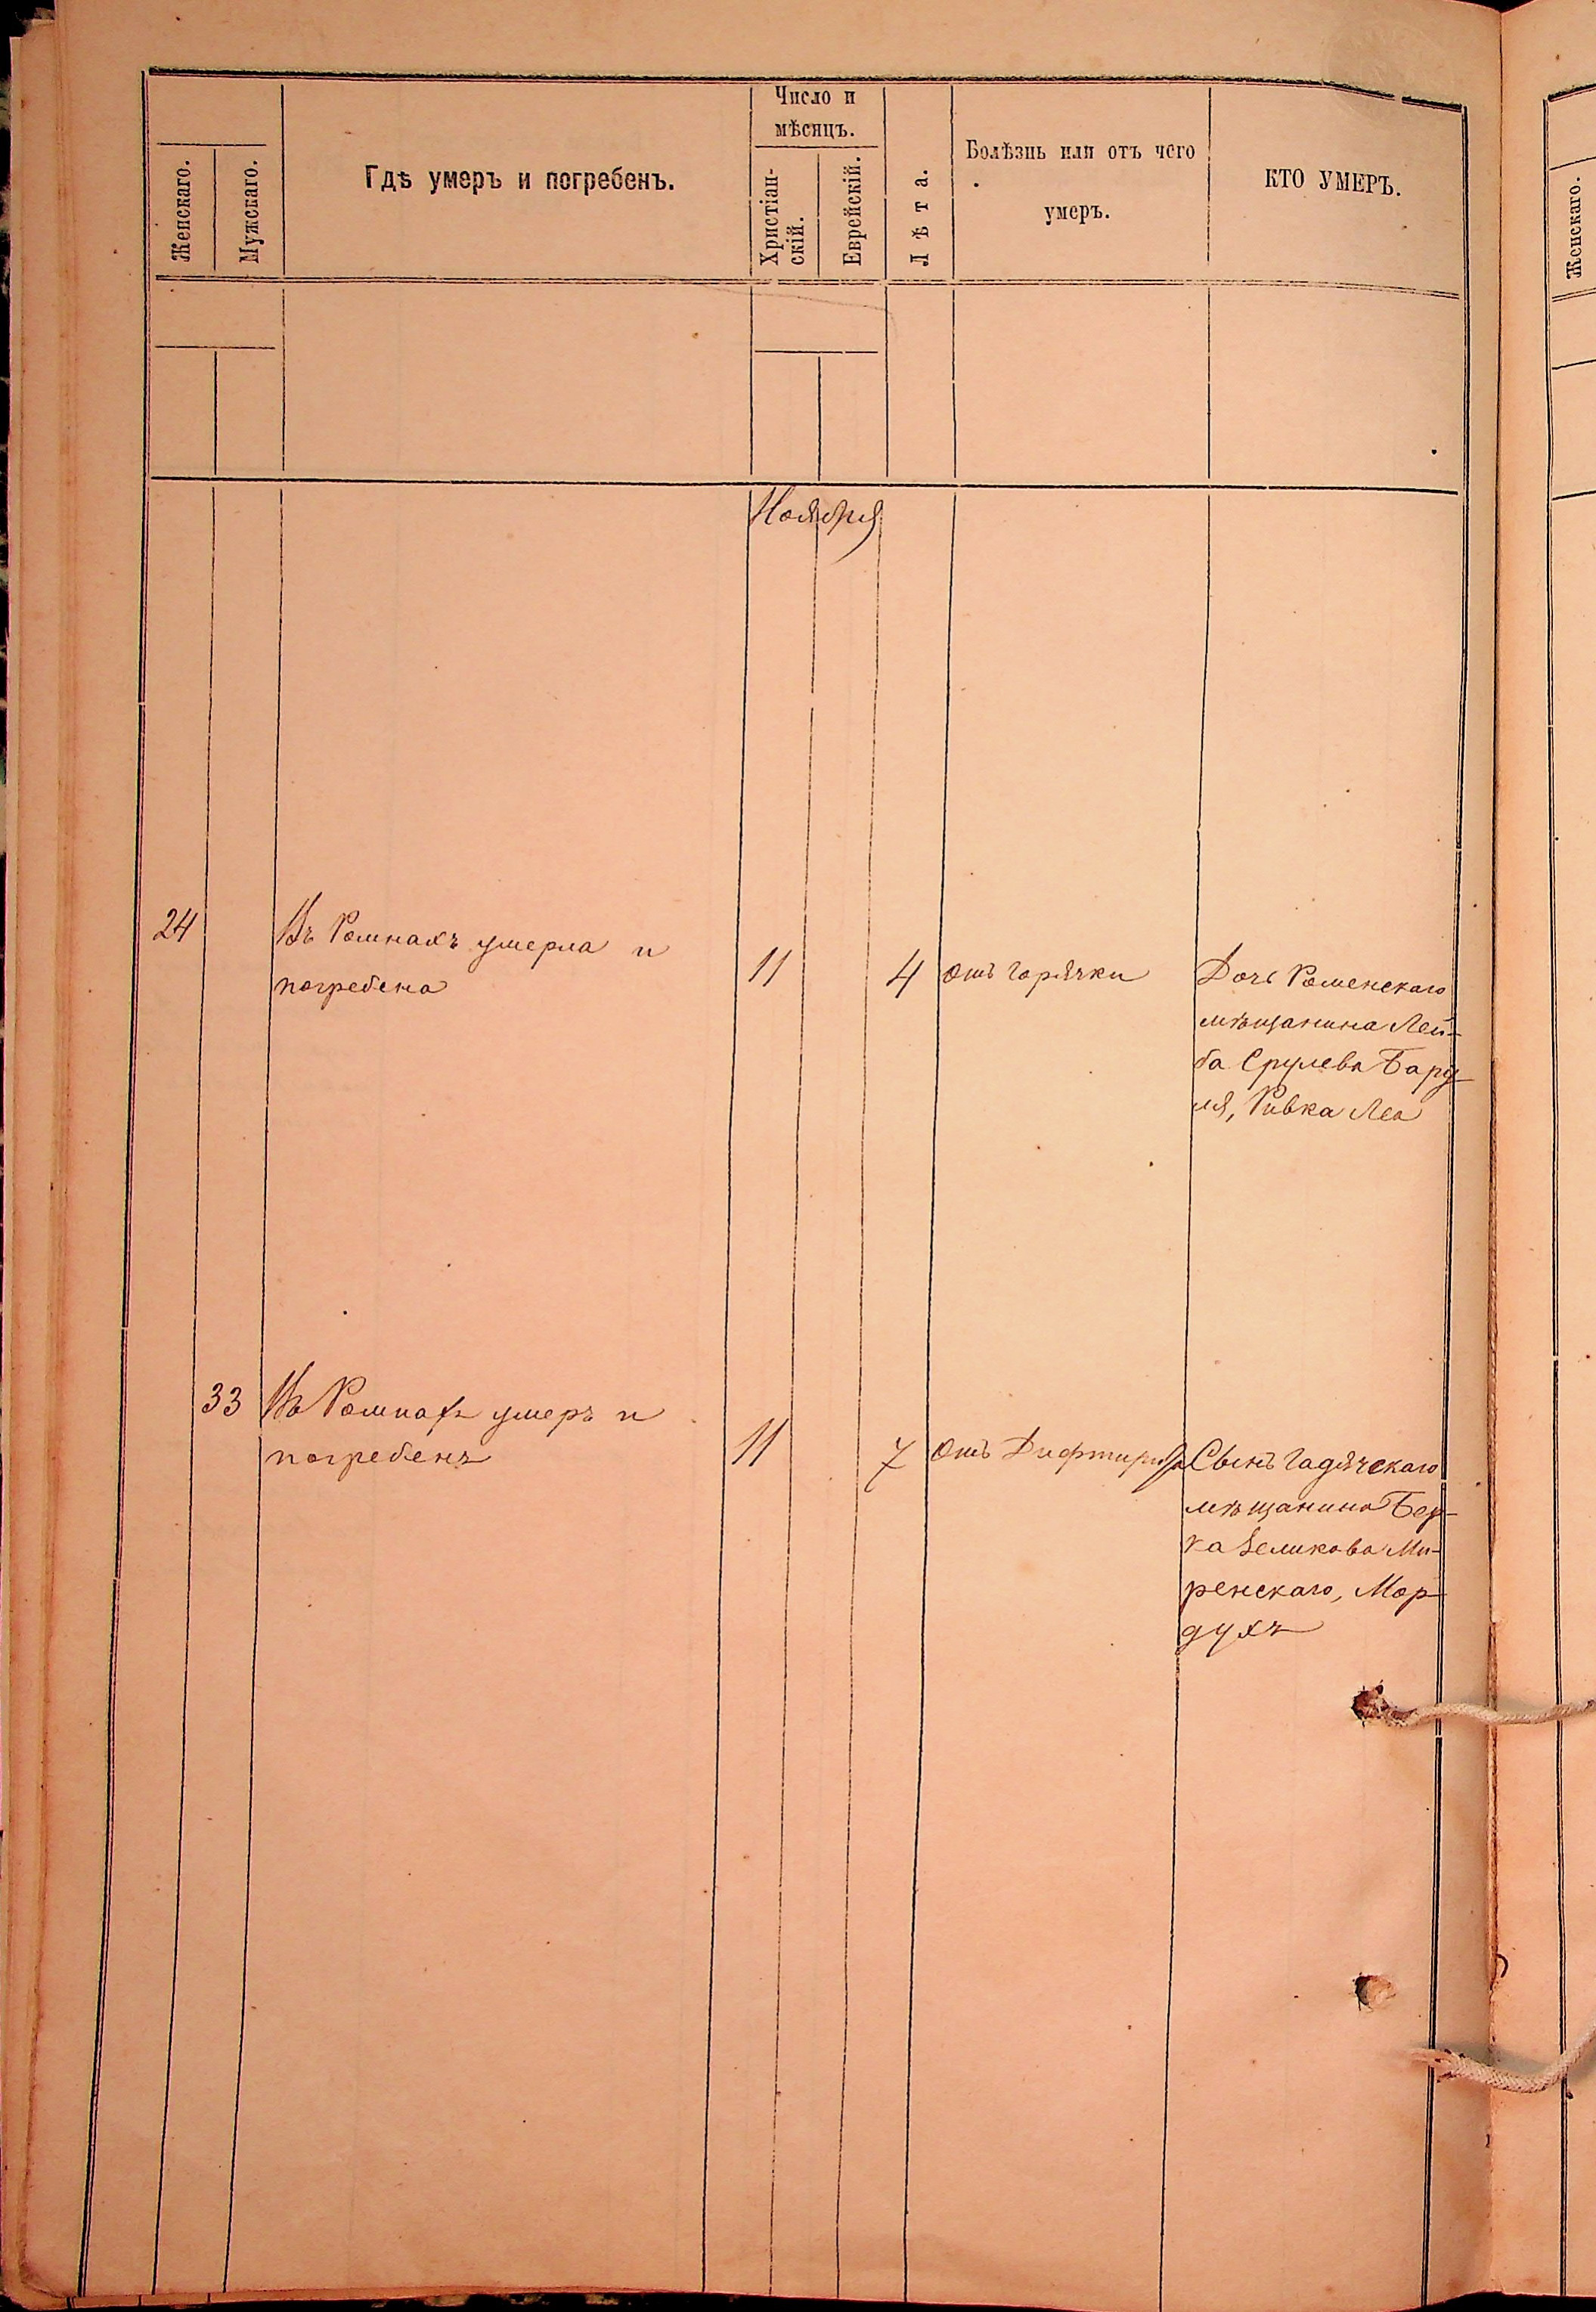 Женскаго.
Мужскаго.
Гдѣ умеръ и погребенъ.
Число и
мѣсяцъ.
Христіан-
скій.
Еврейскій.
Лѣта.
Болѣзнь или отъ чего
умеръ.
КТО УМЕРЪ.
Женскаго.
Ноября
24
Въ Ромнахъ умерла и
погребена
11
4
отъ горячки
Дочь Роменскаго
мѣщанина Лей-
ба Срулева Бару
ля, Ривка Леа
33
Въ Ромнахъ умеръ и
погребенъ
11
7
отъ Дифтирита
Сынъ Гадячскаго
мѣщанина Бер-
ка Зеликова Ми-
ренскаго, Мор-
духъ